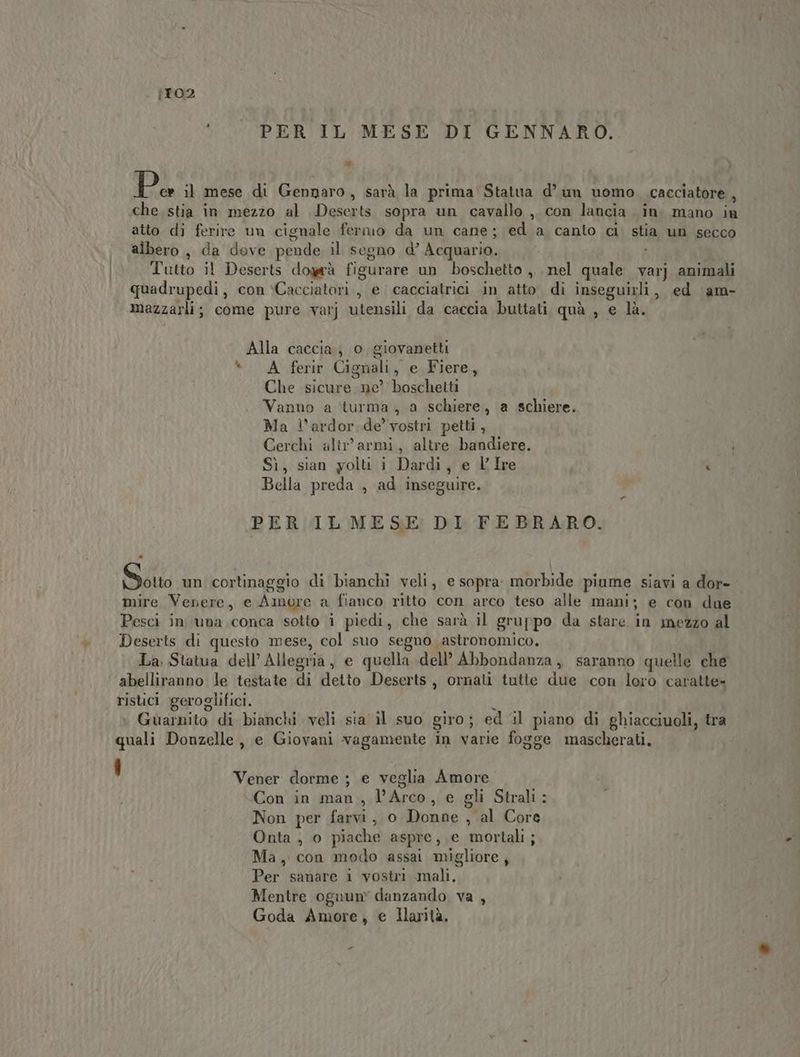 102
PER IL MESE DI GENNARO.
Per il mese di Gennaro, sarà la prima Statua d' un uomo cacciatore,
che stia in mezzo al Deserts sopra un cavallo, con lancia in mano in
atto di ferire un cignale fermo da un cane; ed a canto ci stia un secco
albero, da dove pende il segno d' Acquario.
Tutto il Deserts dovrà figurare un boschetto, nel quale varj animali
quadrupedi, con Cacciatori, e cacciatrici in atto di inseguirli, ed am-
mazzarli; come pure varj utensili da caccia buttati quà, e là.
Alla caccia, o giovanetti
A ferir Cignali, e Fiere,
Che sicure ne' boschetti
Vanno a turma, a schiere, a schiere.
Ma l'ardor de' vostri petti,
Cerchi altr' armi, altre bandiere.
Sì, sian volti i Dardi, e l' Ire
Bella preda, ad inseguire.
PER IL MESE DI FEBRARO.
Sotto un cortinaggio di bianchi veli, e sopra morbide piume siavi a dor-
mire Venere, e Amore a fianco ritto con arco teso alle mani; e con due
Pesci in una conca sotto i piedi, che sarà il gruppo da stare in mezzo al
Deserts di questo mese, col suo segno astronomico.
La Statua dell' Allegria, e quella dell' Abbondanza, saranno quelle che
abelliranno le testate di detto Deserts, ornati tutte due con loro caratte-
ristici geroglifici.
Guarnito di bianchi veli sia il suo giro; ed il piano di ghiacciuoli, tra
quali Donzelle, e Giovani vagamente in varie fogge mascherati.
Vener dorme; e veglia Amore
Con in man, l'Arco, e gli Strali:
Non per farvi, o Donne, al Core
Onta, o piache aspre, e mortali;
Ma, con modo assai migliore,
Per sanare i vostri mali.
Mentre ognun danzando va,
Goda Amore, e Ilarità.